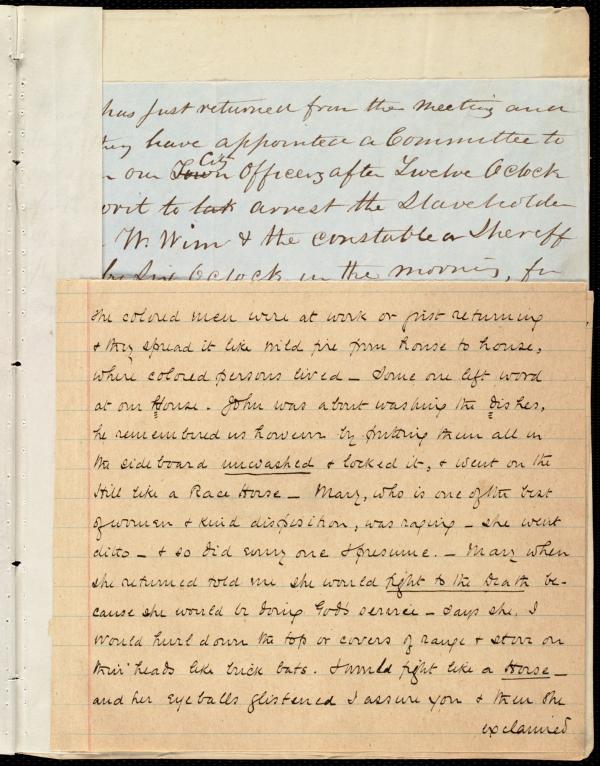 has just returned from the meeting and
they have appointed a Committee to
our Town City Officers after Twelve Oclock
writ to tak arrest the Slaveholder
W. Wim & the constable or Sheriff
by Six Oclock in the morning, for
the colored men were at work or just returning
& they spread it like wild fire from house to house,
where colored persons lived – Some one left word
at our House. John was about washing the dishes,
he remembered us however by putting them all in
the side board unwashed & locked it, & went on the
Hill like a Race Horse – Mary, who is one of the best
of women & kind disposition, was raging – she went
ditto – & so did every one I presume. – Mary when
she returned told me she would fight to the death be-
cause she would be doing God's service – says she, I
would hurl down the top or covers of range & stove on
their heads like brick bats. I would fight like a Horse –
and her eyeballs glistened I assure you & then she
exclaimed